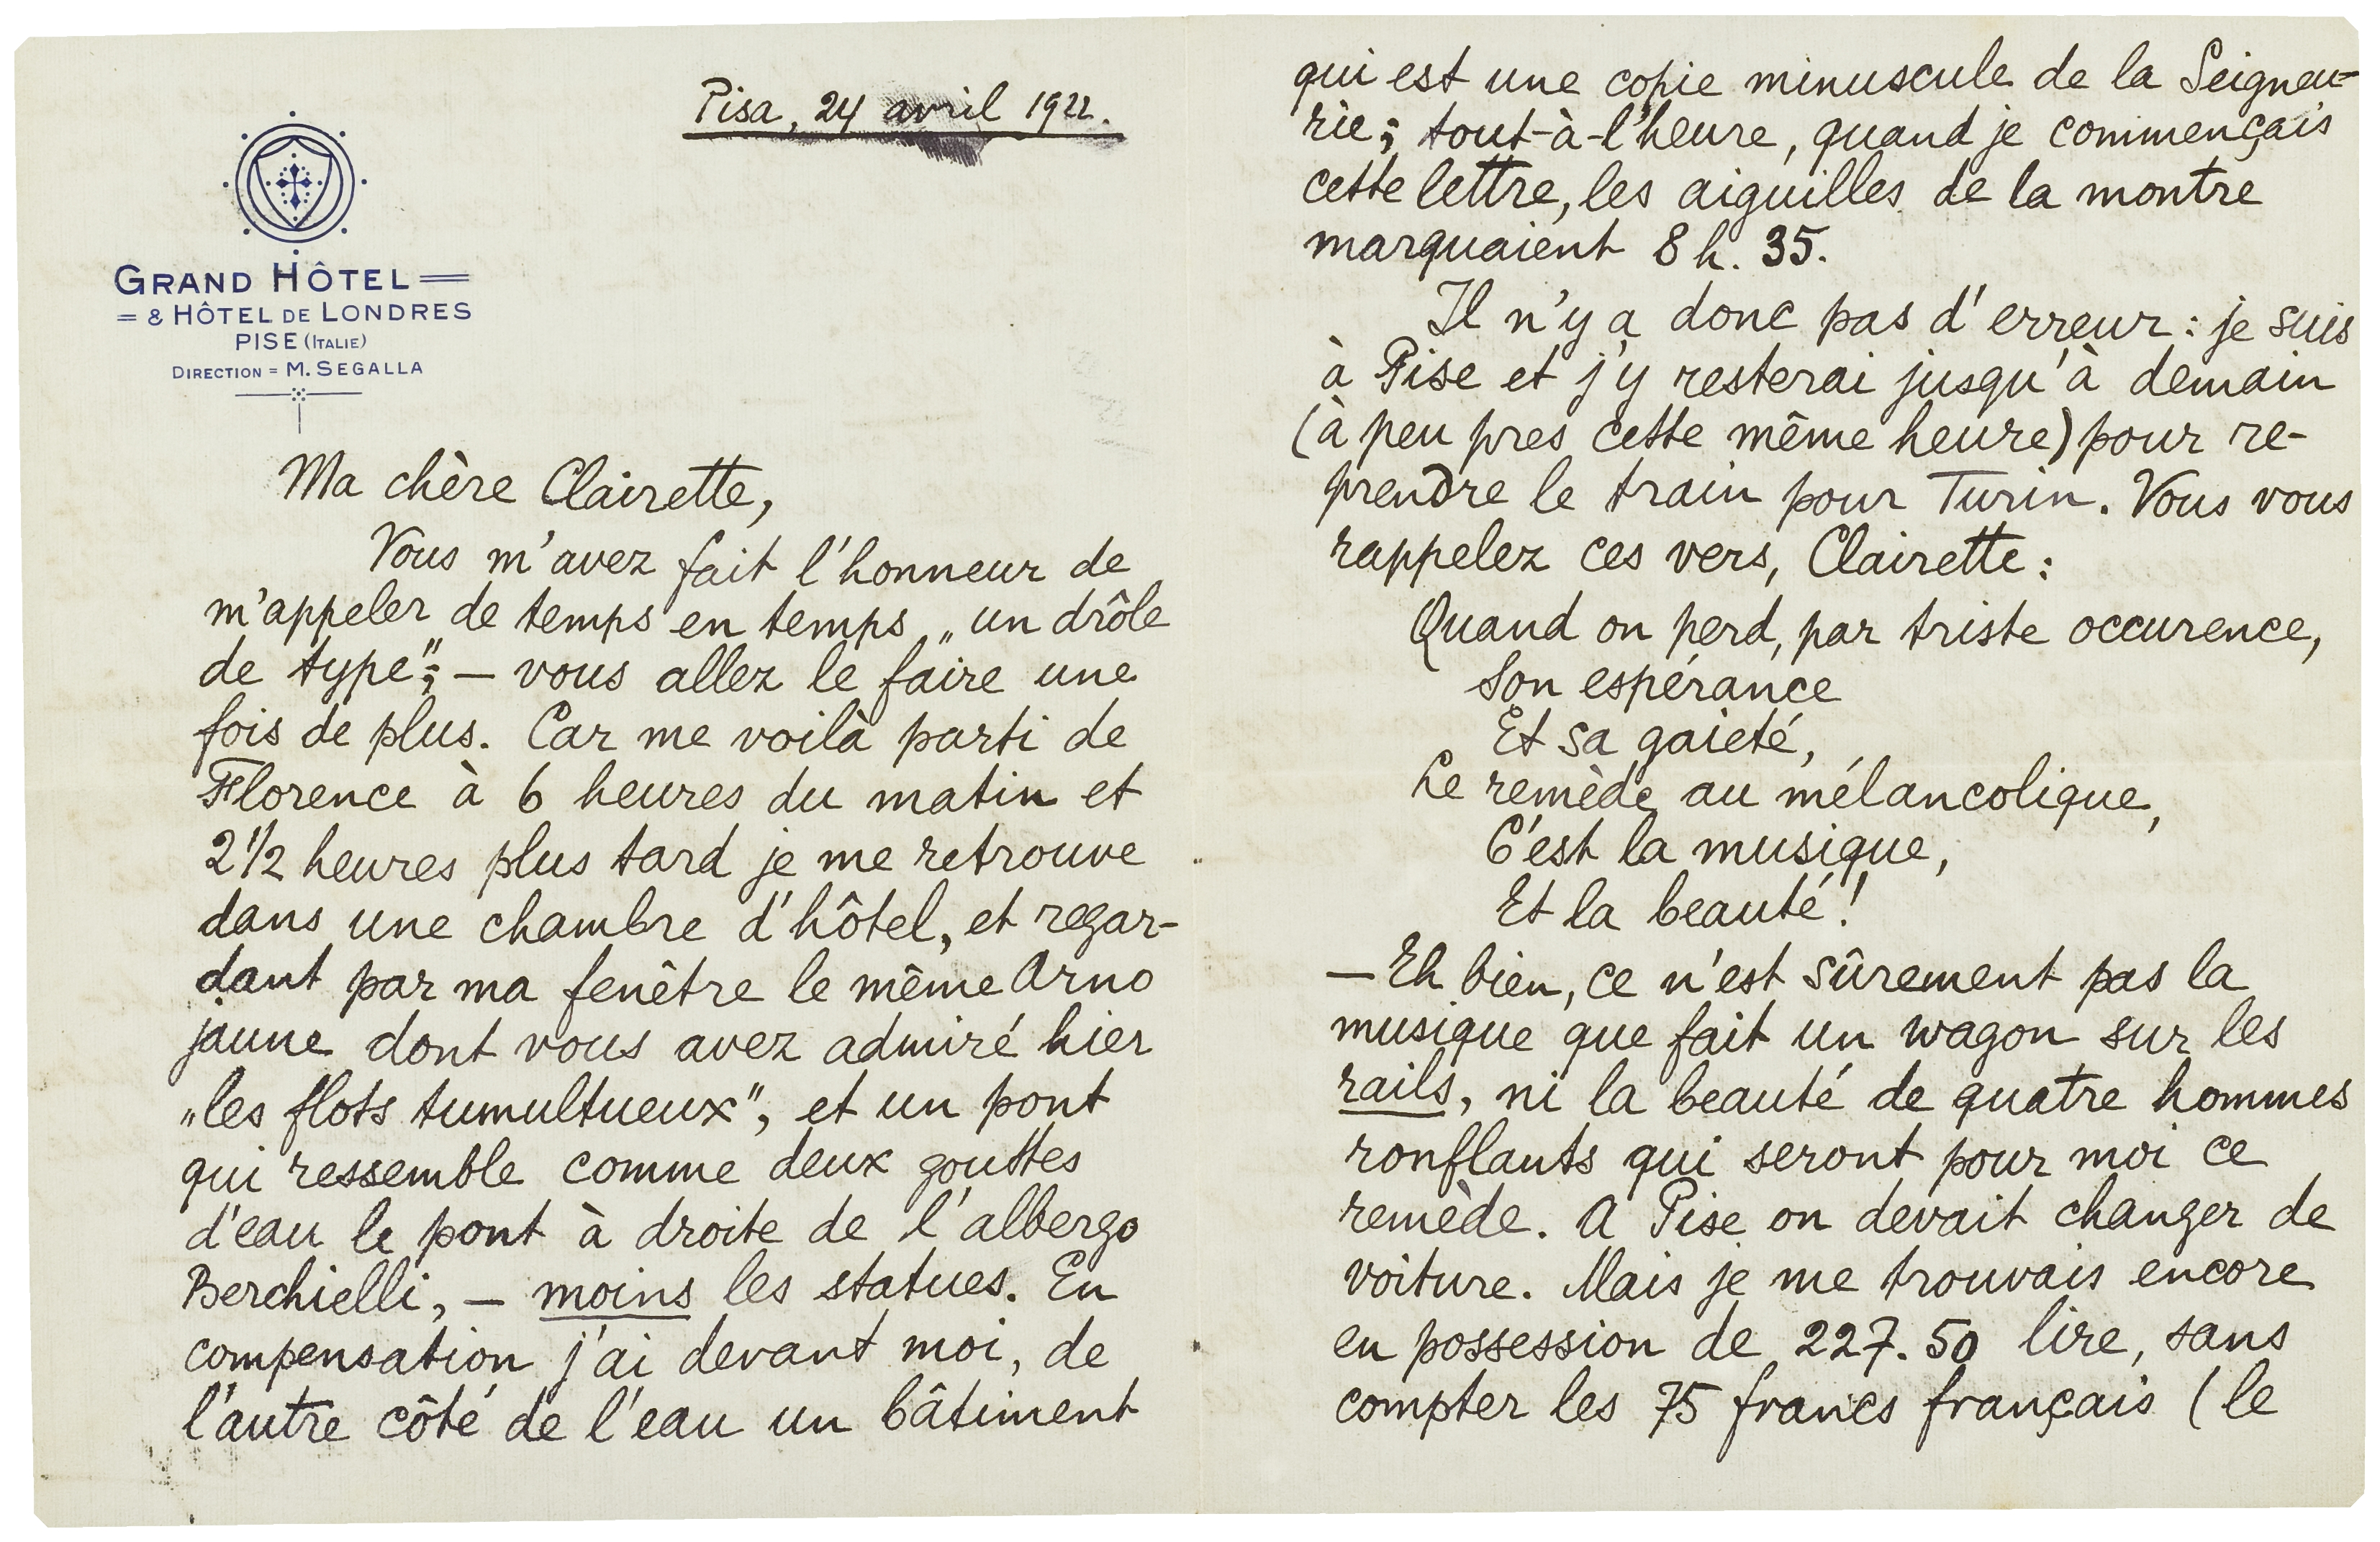 Pisa, 24 avril 1922.
GRAND HÔTEL =
= & HÔTEL DE LONDRES
PISE (ITALIE)
DIRECTION = M. SEGALLA
Ma chère Clairette,
Vous m'avez fait l'honneur de
m'appeler de temps en temps „un drôle
de type"; — vous allez le faire une
fois de plus. Car me voilà parti de
Florence à 6 heures du matin et
2 1/2 heures plus tard je me retrouve
dans une chambre d'hôtel, et regar-
dant par ma fenêtre le même Arno
jaune dont vous avez admiré hier
„les flots tumultueux", et un pont
qui ressemble comme deux gouttes
d'eau le pont à droite de l'albergo
Berchielli, — moins les statues. En
compensation j'ai devant moi, de
l'autre côté de l'eau un bâtiment
qui est une copie minuscule de la Seigneu=
rie; tout-à-l'heure, quand je commençais
cette lettre, les aiguilles de la montre
marquaient 8 h. 35.
Il n'y a donc pas d'erreur : je suis
à Pise et j'y resterai jusqu'à demain
(à peu pres cette même heure) pour re-
prendre le train pour Turin. Vous vous
rappelez ces vers, Clairette :
Quand on perd, par triste occurence,
Son espérance
Et sa gaieté,
Le remède au mélancolique,
C'est la musique,
Et la beauté !
— Eh bien, ce n'est sûrement pas la
musique que fait un wagon sur les
rails, ni la beauté de quatre hommes
ronflants qui seront pour moi ce
remède. A Pise on devait changer de
voiture. Mais je me trouvais encore
en possession de 227.50 lire, sans
compter les 75 francs français (le